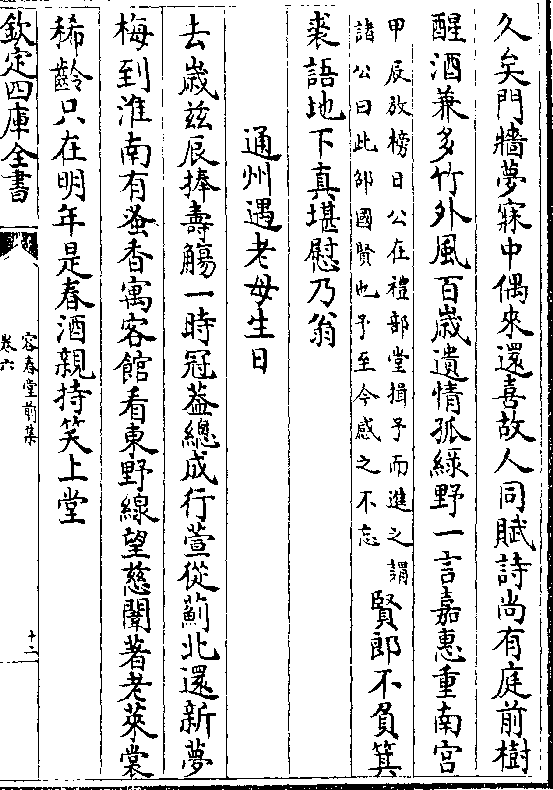 久矣門牆夢寐中偶來還喜故人同賦詩尚有庭前樹
醒酒兼多竹外風百歳遺情孤緑野一言嘉惠重南宫
甲辰放榜日公在禮部堂揖予而進之謂
諸公曰此邰國賢也予至今感之不忘
賢郎不負箕
裘語地下真堪慰乃翁
通州遇老母生日
去歳兹辰捧壽觴一時冠葢總成行萱從薊北還新夢
梅到淮南有蚤香寓客館看東野線望慈闈著老萊裳
稀齡只在明年是春酒親持笑上堂
欽定四庫全書
容春堂前集
卷六
十二